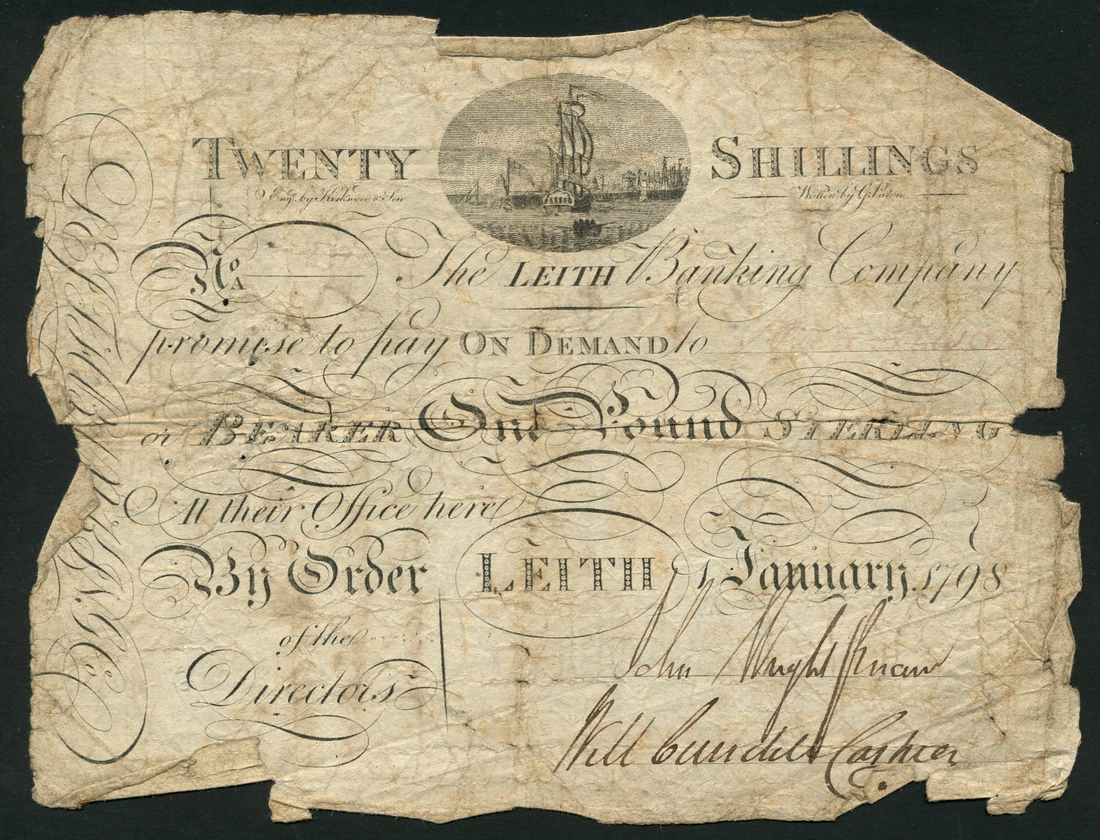 TWENTY SHILLINGS
Engd. by Kirkwood & Son
No
A
The LEITH Banking Company
promise to pay ON DEMAND to
or BEARER One Pound STERLING
At their Office here
By Order LEITH 1 January 1798
of the
Directors
John Wright
Will Cashier
LEITH BANKING Co